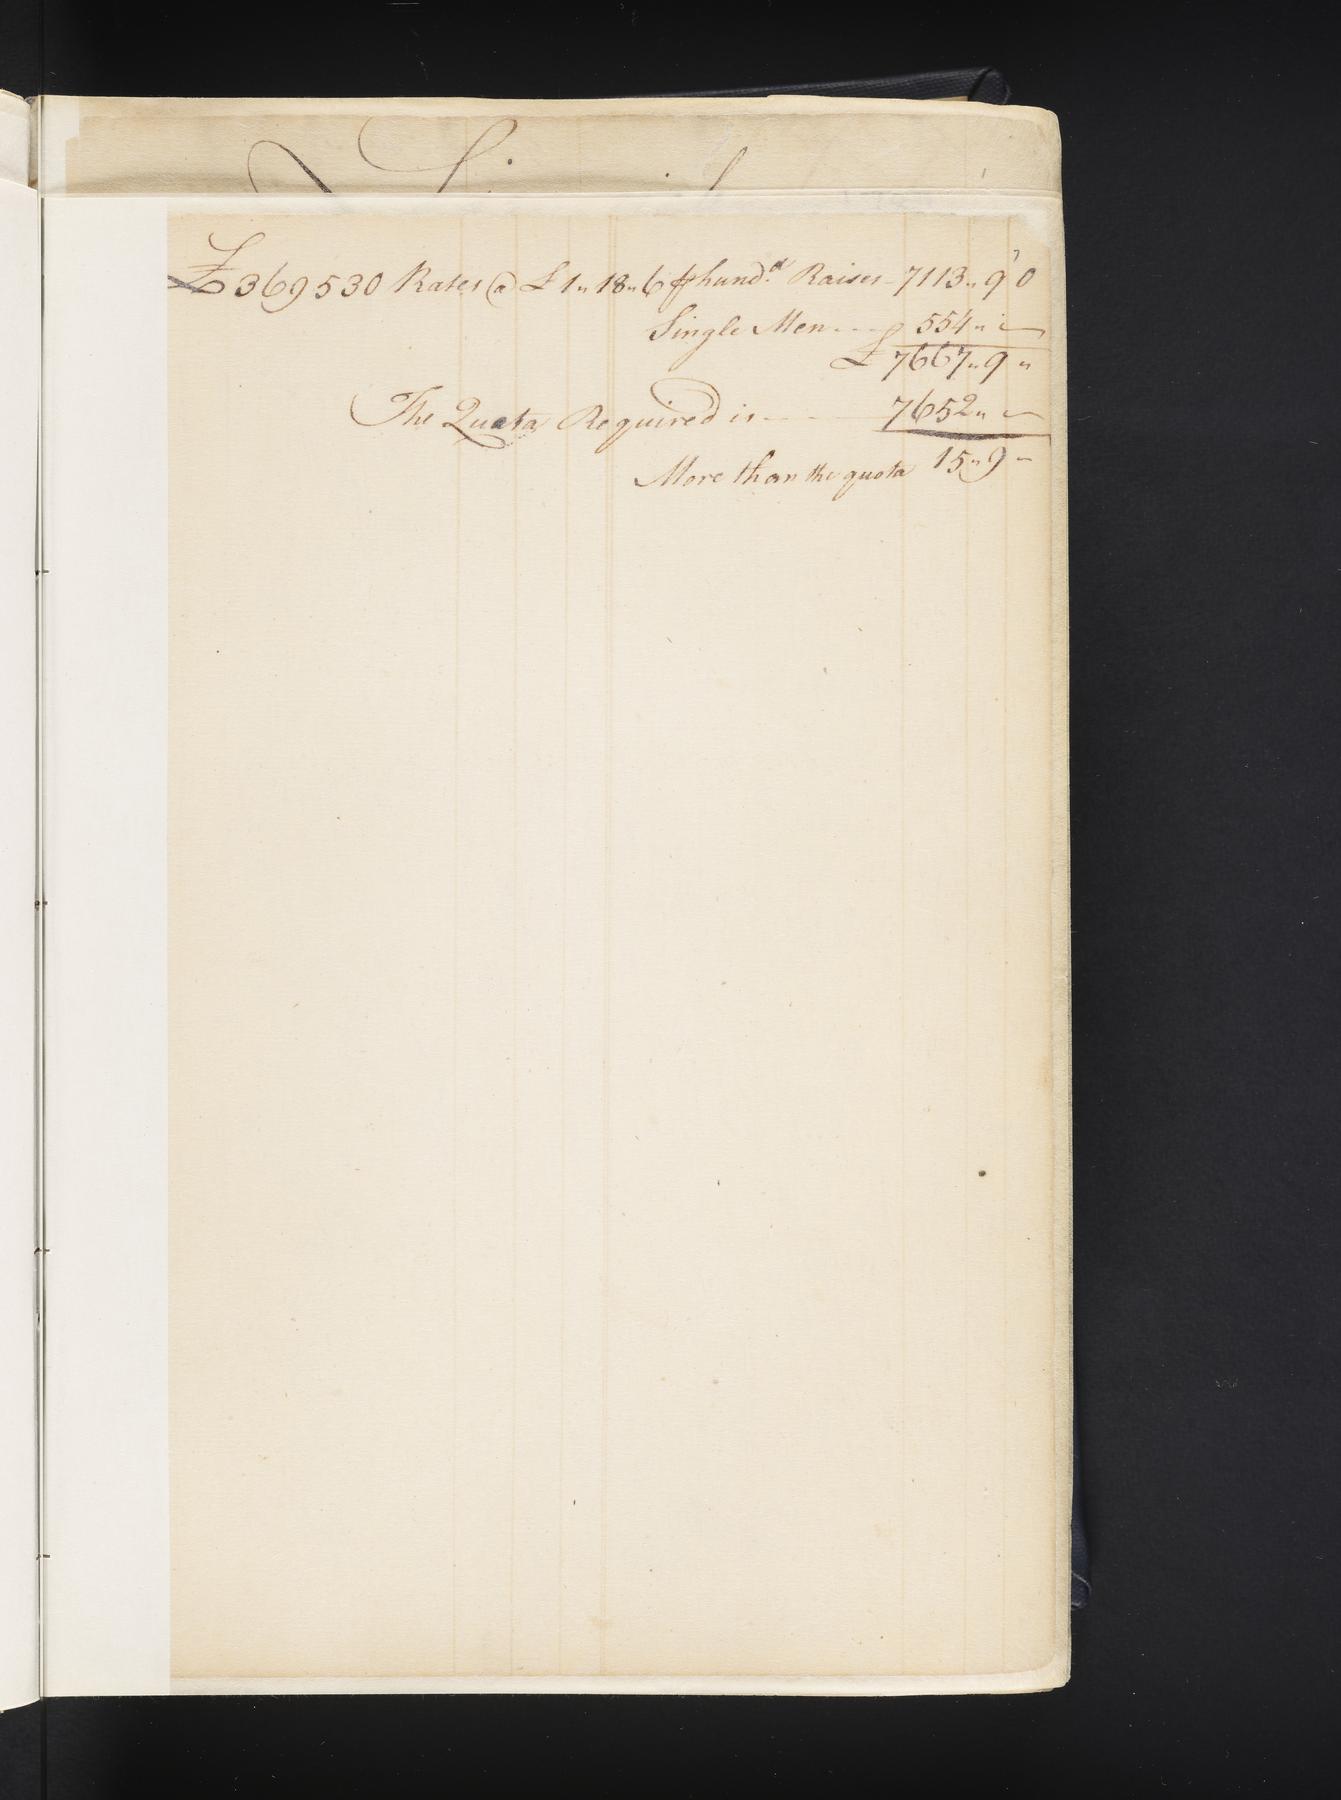 £369530 Rates @ £1„18„6 ⅌ hundᵈ. Raises - 7113„9„0
Single Men - - - 554„ „ —
£ 7667„9 „
The Quota Required is - - - 7652„ —
More than the quota 15„9 „